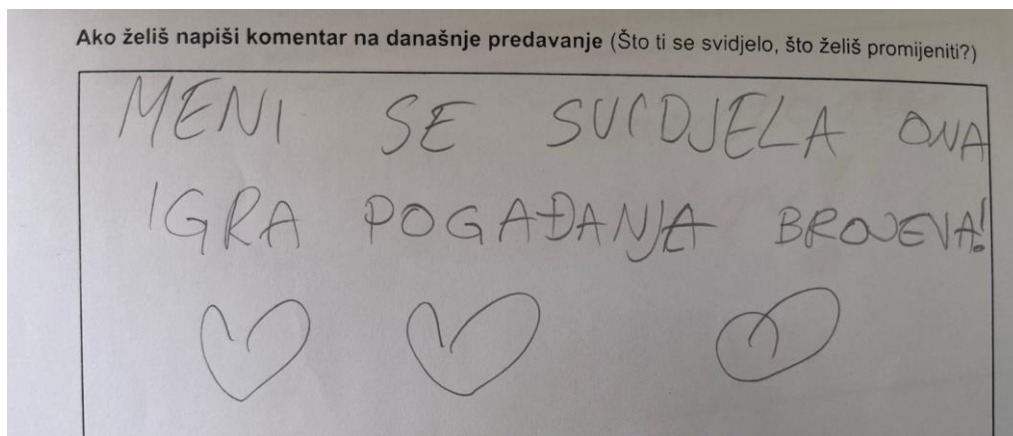 Ako želiš napiši komentar na današnje predavanje (Što ti se svidjelo, što želiš promijeniti?)
MENI SE SVIDJELA ONA
IGRA POGAĐANJA BROJEVA!